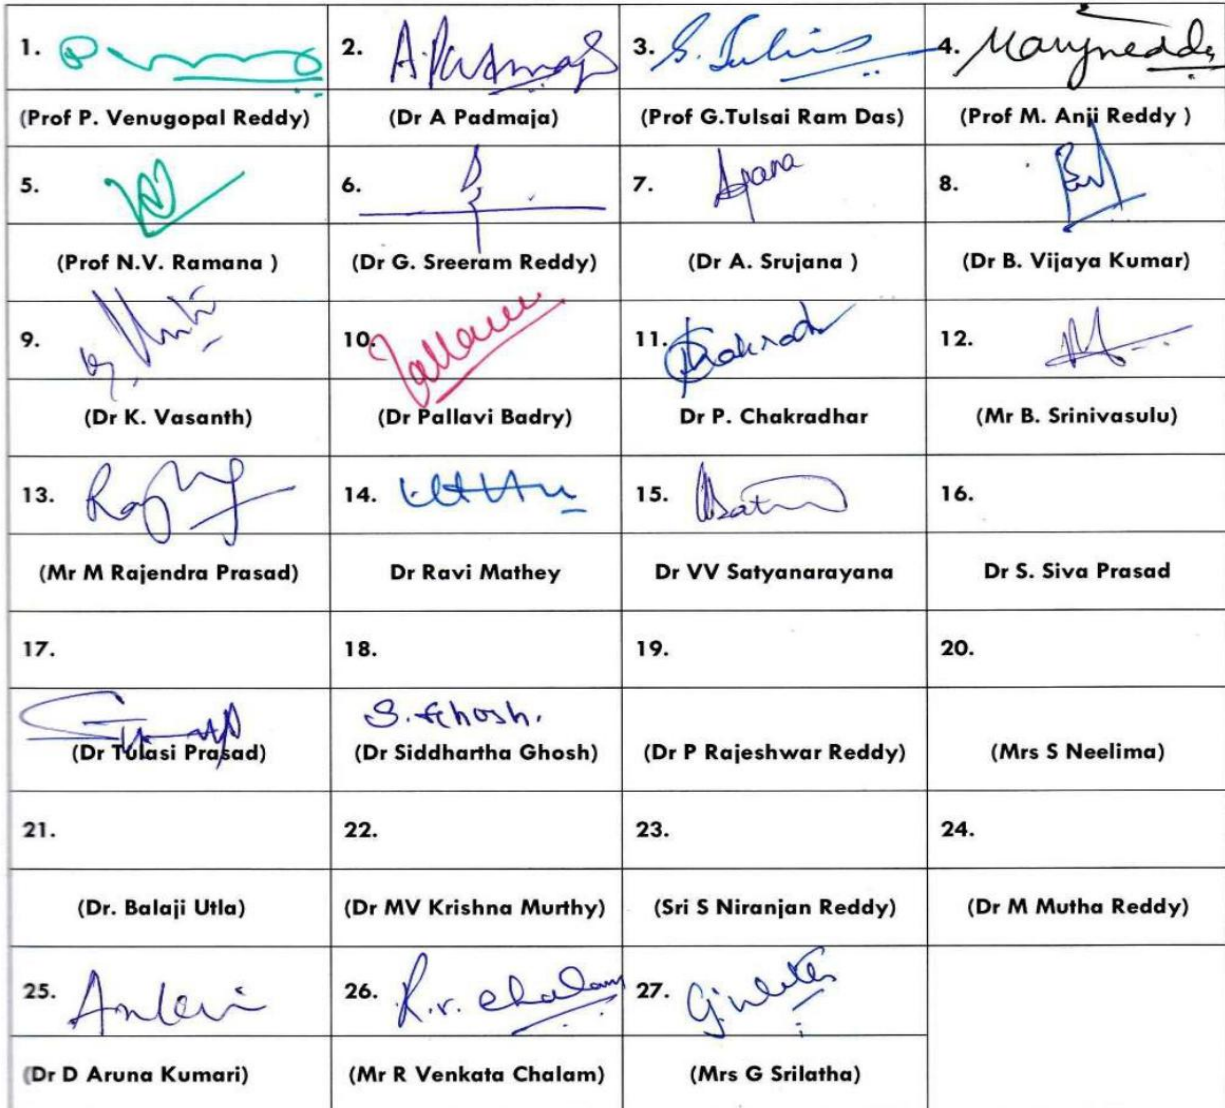 1. 2. A. Padmaja 3. 4.
(Prof P. Venugopal Reddy) (Dr A Padmaja) (Prof G.Tulsai Ram Das) (Prof M. Anji Reddy )
5. 6. 7. 8.
(Prof N.V. Ramana ) (Dr G. Sreeram Reddy) (Dr A. Srujana ) (Dr B. Vijaya Kumar)
9. 10. 11. 12.
(Dr K. Vasanth) (Dr Pallavi Badry) Dr P. Chakradhar (Mr B. Srinivasulu)
13. 14. 15. 16.
(Mr M Rajendra Prasad) Dr Ravi Mathey Dr VV Satyanarayana Dr S. Siva Prasad
17. 18. 19. 20.
S. Ghosh.
(Dr Tulasi Prasad) (Dr Siddhartha Ghosh) (Dr P Rajeshwar Reddy) (Mrs S Neelima)
21. 22. 23. 24.
(Dr. Balaji Utla) (Dr MV Krishna Murthy) (Sri S Niranjan Reddy) (Dr M Mutha Reddy)
25. 26. R.v. Chalam 27.
(Dr D Aruna Kumari) (Mr R Venkata Chalam) (Mrs G Srilatha)